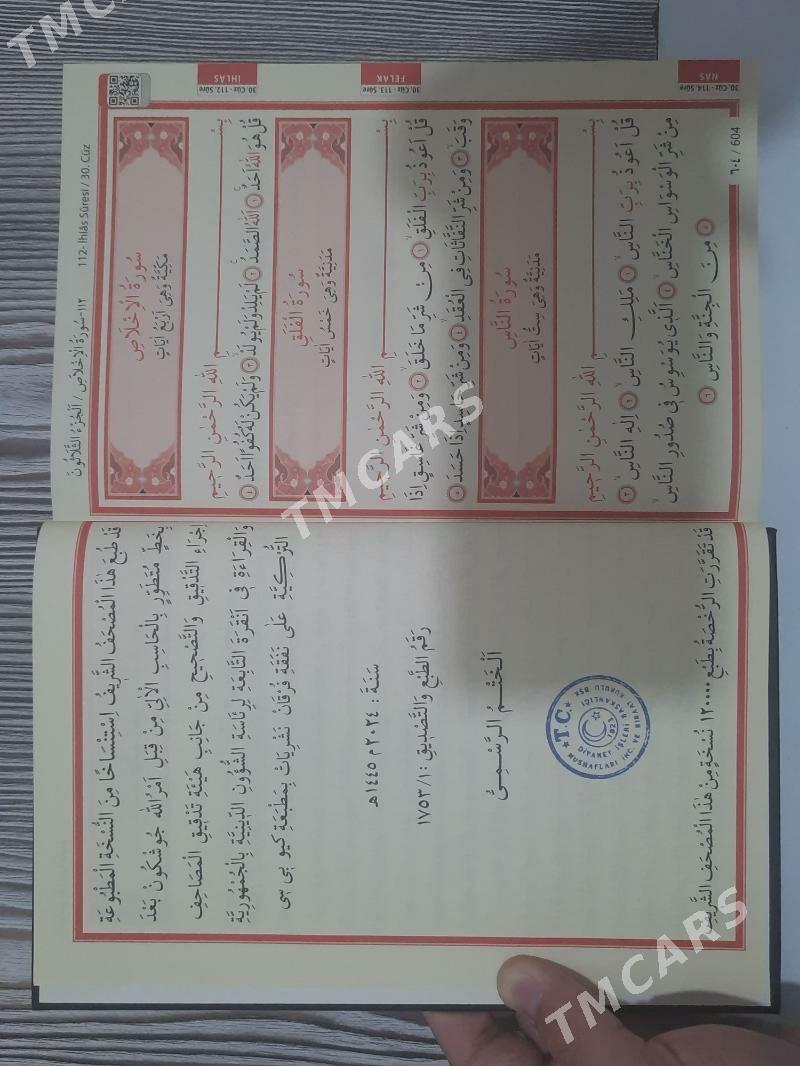 112- İhlâs Sûresi / 30. Cüz
١١٢-سُورَةُ الْاِخْلَاصِ / اَلْجُزْءُ الثَّلَاثُونَ
30. Cüz - 112. Sûre
İHLÂS
30. Cüz - 113. Sûre
FELAK
30. Cüz - 114. Sûre
NÂS
سُورَةُ الْاِخْلَاصِ
مَكِّيَّةٌ وَهِىَ اَرْبَعُ اٰيَاتٍ
بِسْمِ اللّٰهِ الرَّحْمٰنِ الرَّح۪يمِ
قُلْ هُوَ اللّٰهُ اَحَدٌۚ ﴿١﴾ اَللّٰهُ الصَّمَدُۚ ﴿٢﴾ لَمْ يَلِدْ وَلَمْ يُولَدْۙ ﴿٣﴾ وَلَمْ يَكُنْ لَهُ كُفُوًا اَحَدٌ ﴿٤﴾
سُورَةُ الْفَلَقِ
مَدَنِيَّةٌ وَهِىَ خَمْسُ اٰيَاتٍ
بِسْمِ اللّٰهِ الرَّحْمٰنِ الرَّح۪يمِ
قُلْ اَعُوذُ بِرَبِّ الْفَلَقِۙ ﴿١﴾ مِنْ شَرِّ مَا خَلَقَۙ ﴿٢﴾ وَمِنْ شَرِّ غَاسِقٍ اِذَا
وَقَبَۙ ﴿٣﴾ وَمِنْ شَرِّ النَّفَّاثَاتِ فِى الْعُقَدِۙ ﴿٤﴾ وَمِنْ شَرِّ حَاسِدٍ اِذَا حَسَدَ ﴿٥﴾
سُورَةُ النَّاسِ
مَدَنِيَّةٌ وَهِىَ سِتُّ اٰيَاتٍ
بِسْمِ اللّٰهِ الرَّحْمٰنِ الرَّح۪يمِ
قُلْ اَعُوذُ بِرَبِّ النَّاسِۙ ﴿١﴾ مَلِكِ النَّاسِۙ ﴿٢﴾ اِلٰهِ النَّاسِۙ ﴿٣﴾
مِنْ شَرِّ الْوَسْوَاسِ الْخَنَّاسِۙ ﴿٤﴾ اَلَّذ۪ى يُوَسْوِسُ ف۪ى صُدُورِ النَّاسِۙ
﴿٥﴾ مِنَ الْجِنَّةِ وَالنَّاسِ ﴿٦﴾
٦٠٤ / 604
قَدْ طُبِعَ هٰذَا الْمُصْحَفُ الشَّرِيفُ اِسْتِنْسَاخًا مِنَ النُّسْخَةِ الْمَطْبُوعَةِ
بِخَطٍّ مُتَطَوِّرٍ بِالْحَاسِبِ الْاٰلِىِّ مِنْ قِبَلِ اَمْرُ اللّٰه جُوشْكُونْ بَعْدَ
اِجْرَاءِ التَّدْقِيقِ وَالتَّصْحِيحِ مِنْ جَانِبِ هَيْئَةِ تَدْقِيقِ الْمَصَاحِفِ
وَالْقِرَاءَةِ فِى اَنْقَرَةَ التَّابِعَةِ لِرِئَاسَةِ الشُّؤُونِ الدِّينِيَّةِ بِالْجُمْهُورِيَّةِ
التُّرْكِيَّةِ عَلٰى نَفَقَةِ فُرْقَانْ نَشْرِيَاتْ بِمَطْبَعَةِ كيو بى سى
سَنَةَ : ٢٠٢٤م ١٤٤٥هـ
رَقَمُ الطَّبْعِ وَالتَّصْدِيقِ : ١٧٥٣/١
اَلْخَتْمُ الرَّسْمِىُّ
T.C.
DİYANET İŞLERİ BAŞKANLIĞI
MUSHAFLARI İNC. VE KIRAAT KURULU BŞK.
1923
قَدْ تَقَرَّرَتِ الرُّخْصَةُ بِطَبْعِ ١٢٠٠٠٠ نُسْخَةٍ مِنْ هٰذَا الْمُصْحَفِ الشَّرِيفِ
TMCARS
TMCARS
TMCARS